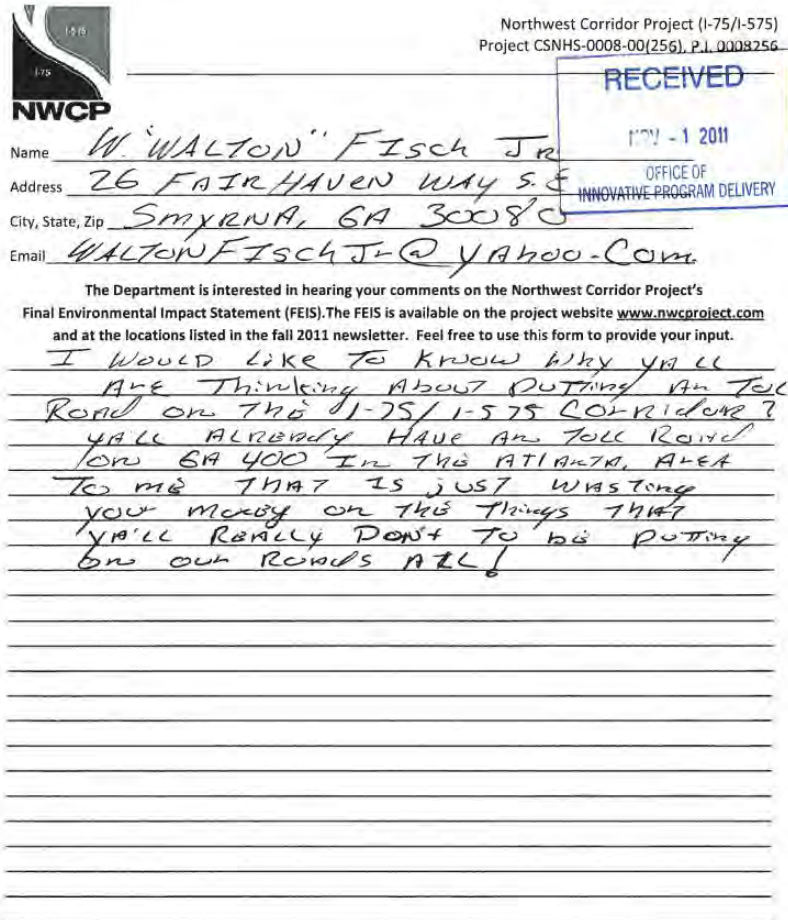 I-575
I-75
NWCP
Northwest Corridor Project (I-75/I-575)
Project CSNHS-0008-00(256), P.I. 0008256
RECEIVED
NOV - 1 2011
OFFICE OF
INNOVATIVE PROGRAM DELIVERY
Name W. "WALTON" FISch JR
Address 26 FAIRHAVEN WAY S.E
City, State, Zip SMYRNA, GA 30080
Email WALTONFISchJr@yAhoo.Com.
The Department is interested in hearing your comments on the Northwest Corridor Project's
Final Environmental Impact Statement (FEIS).The FEIS is available on the project website www.nwcproject.com
and at the locations listed in the fall 2011 newsletter. Feel free to use this form to provide your input.
I WOULD LIKE TO KNOW WHY YALL
ARE Thinking About PUTTING AN TOL
ROAD ON THE I-75/I-575 CORRIDOR?
YALL ALREADY HAVE AN TOLL ROAD
ON GA 400 IN THE ATLANTA, AREA
TO ME THAT IS JUST WASTING
your money on THE Things THAT
YA'LL REALLY DON'T TO BE PUTTING
ON OUR ROADS ALL!